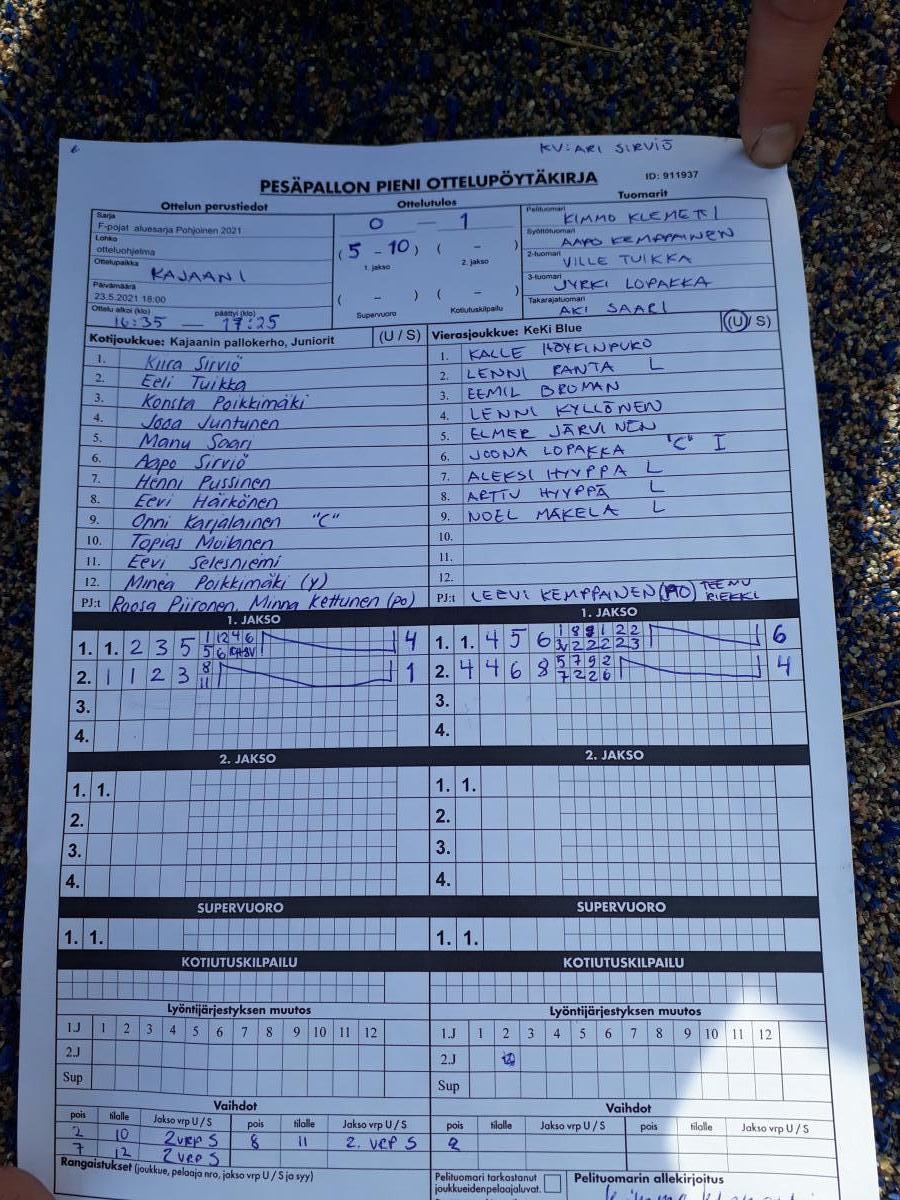 KV: ARI SIRVIÖ
PESÄPALLON PIENI OTTELUPÖYTÄKIRJA
ID: 911937
Ottelun perustiedot
Ottelutulos
Tuomarit
Sarja
F-pojat aluesarja Pohjoinen 2021
Lohko
otteluohjelma
Ottelupaikka KAJAANI
Päivämäärä
23.5.2021 18:00
Ottelu alkoi (klo) päättyi (klo)
16:35 — 17:25
0 — 1
(5 - 10) ( - )
1. jakso 2. jakso
( - ) ( - )
Supervuoro Kotiutuskilpailu
Pelituomari KIMMO KLEMETTI
Syöttötuomari AAPO KEMPPAINEN
2-tuomari VILLE TUIKKA
3-tuomari JYRKI LOPAKKA
Takarajatuomari AKI SAARI
Kotijoukkue: Kajaanin pallokerho, Juniorit (U / S)
1. Kiira Sirviö
2. Eeli Tuikka
3. Konsta Poikkimäki
4. Jooa Juntunen
5. Manu Saari
6. Aapo Sirviö
7. Henni Pussinen
8. Eevi Härkönen
9. Onni Karjalainen "C"
10. Topias Moilanen
11. Eevi Selesniemi
12. Minea Poikkimäki (Y)
PJ:t Roosa Piironen, Minna Kettunen (PO)
Vierasjoukkue: KeKi Blue (U / S)
1. KALLE HÖYKINPURO
2. LENNI RANTA L
3. EEMIL BROMAN
4. LENNI KYLLÖNEN
5. ELMER JÄRVINEN
6. JOONA LOPAKKA "C" I
7. ALEKSI HYYPPÄ L
8. ARTTU HYYPPÄ L
9. NOEL MÄKELÄ L
10.
11.
12.
PJ:t LEEVI KEMPPAINEN (PO) TEEMU RIEKKI
1. JAKSO
1. 1. 2 3 5 4
2. 1 1 2 3 8 11 1
3.
4.
1. JAKSO
1. 1. 4 5 6 6
2. 4 4 6 8 5 7 9 2 7 2 2 6 4
3.
4.
2. JAKSO
1. 1.
2.
3.
4.
2. JAKSO
1. 1.
2.
3.
4.
SUPERVUORO
1. 1.
SUPERVUORO
1. 1.
KOTIUTUSKILPAILU
KOTIUTUSKILPAILU
Lyöntijärjestyksen muutos
1.J 1 2 3 4 5 6 7 8 9 10 11 12
2.J
Sup
Lyöntijärjestyksen muutos
1.J 1 2 3 4 5 6 7 8 9 10 11 12
2.J
Sup
Vaihdot
pois tilalle Jakso vrp U / S pois tilalle Jakso vrp U / S
2 10 2 vrp S 8 11 2. vrp S
7 12 2 vrp S
Vaihdot
pois tilalle Jakso vrp U / S pois tilalle Jakso vrp U / S
2
Rangaistukset (joukkue, pelaaja nro, jakso vrp U / S ja syy)
Pelituomari tarkastanut
joukkueidenpelaajaluvat.
Pelituomarin allekirjoitus